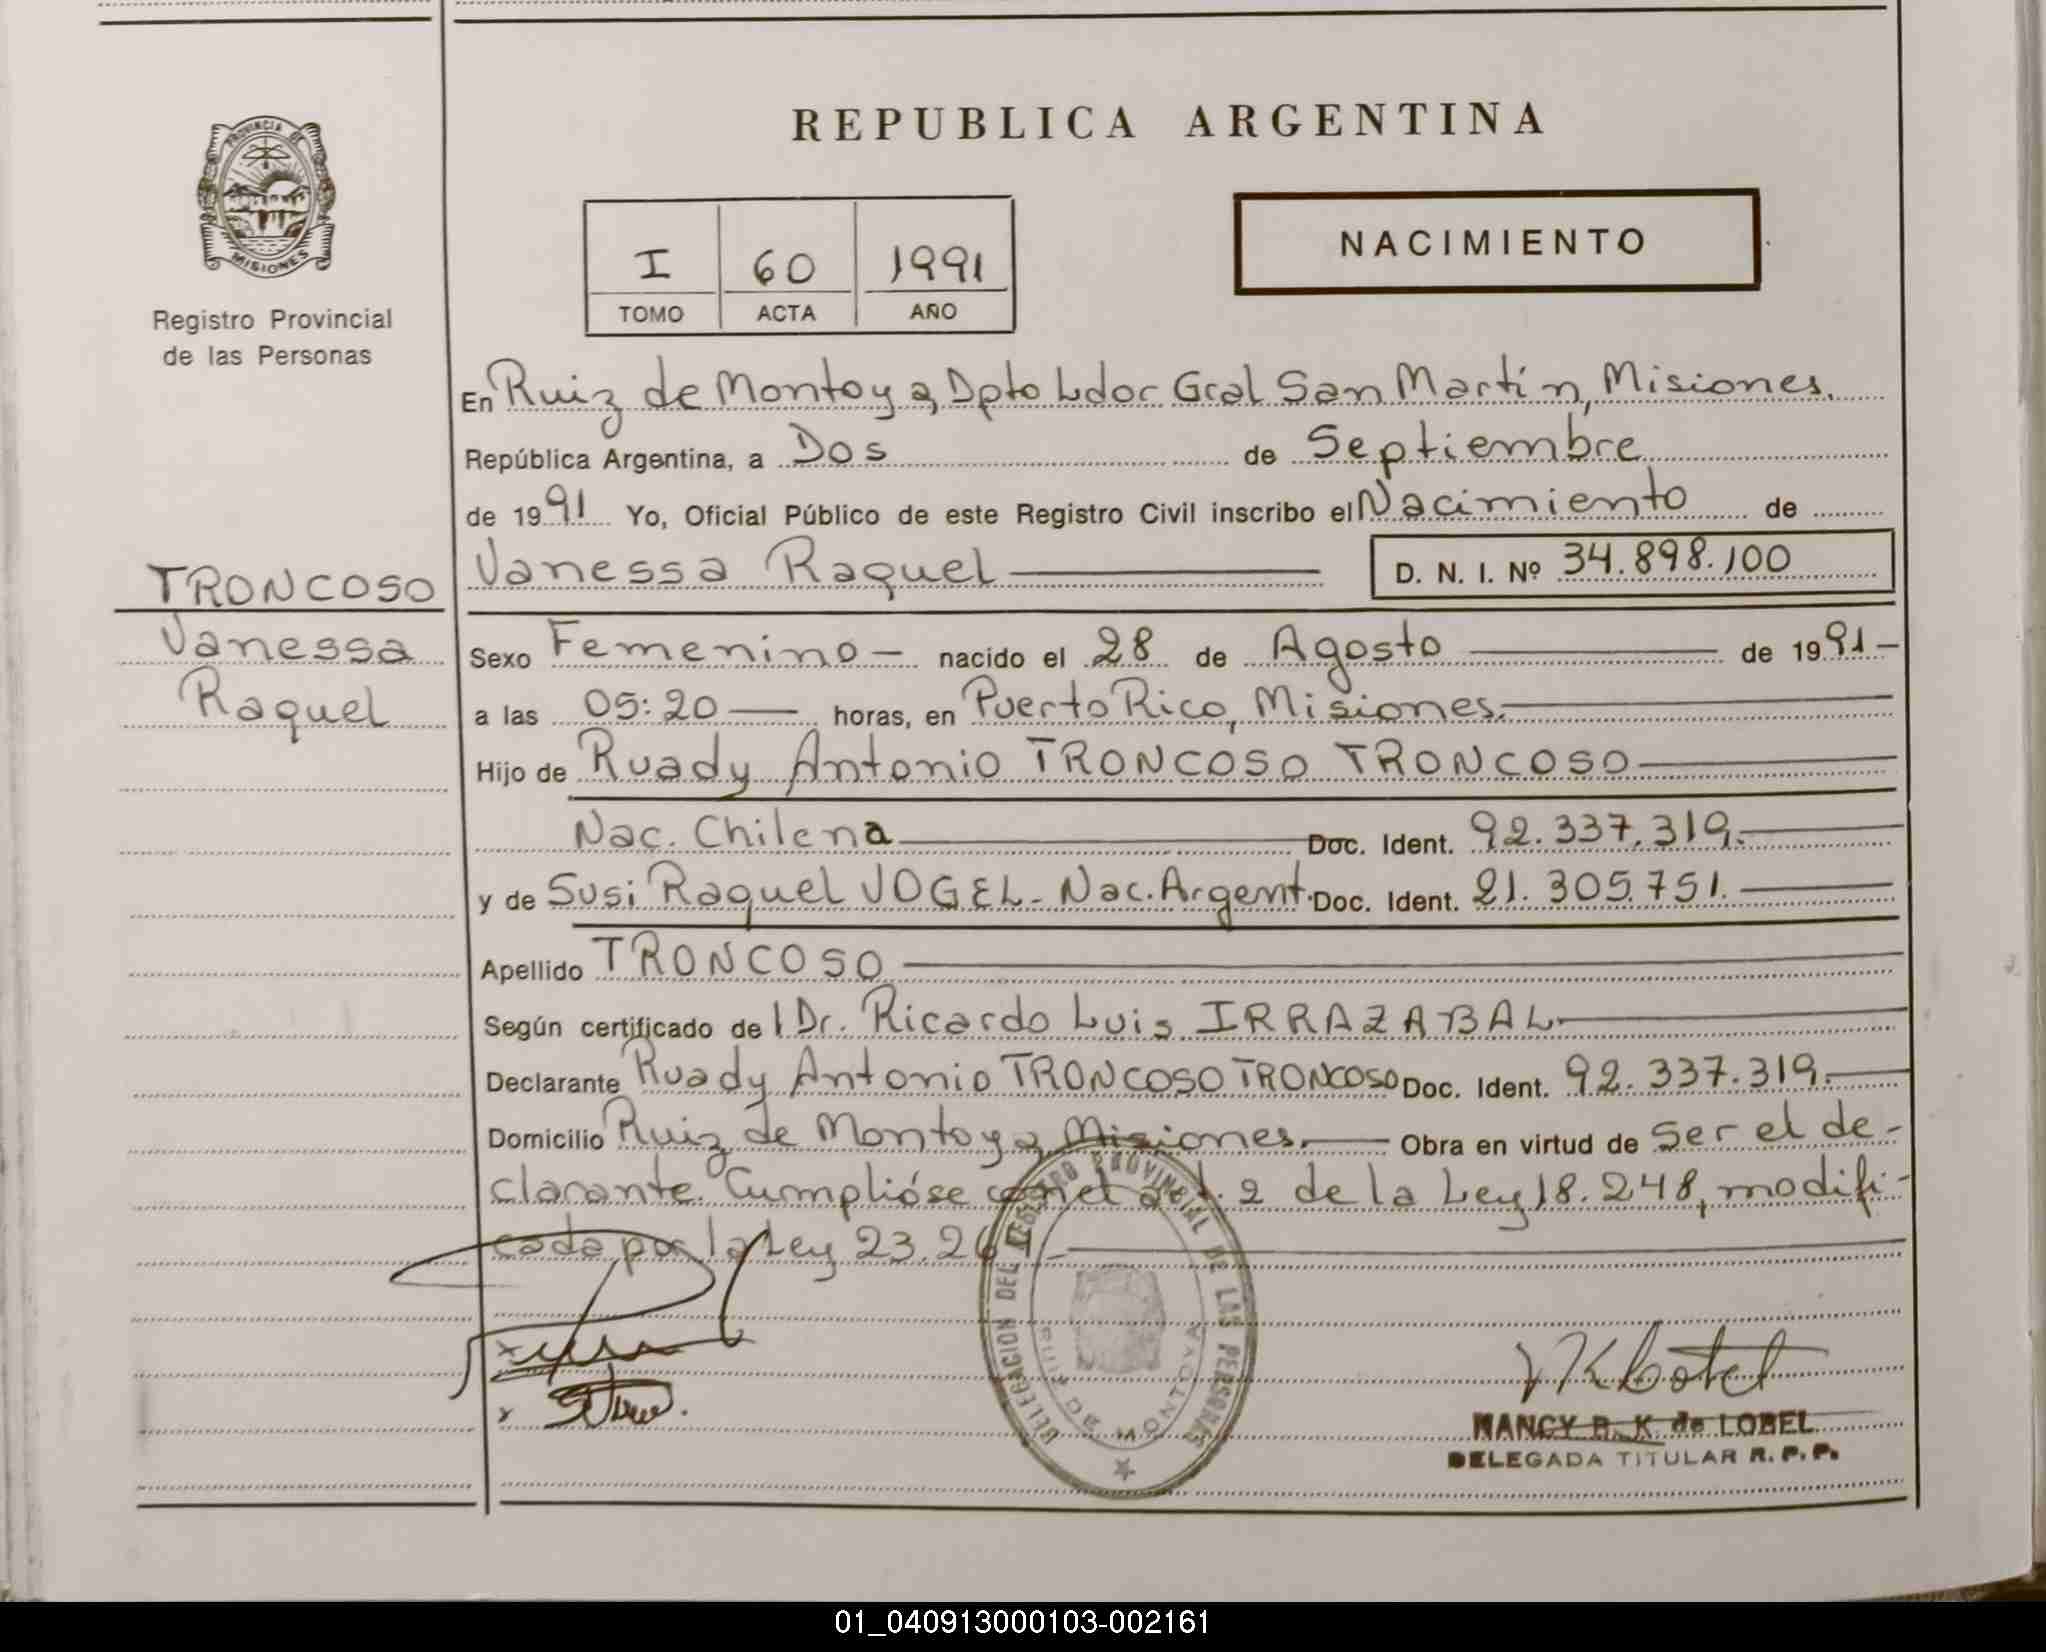 REPUBLICA ARGENTINA
PROVINCIA DE
MISIONES
Registro Provincial
de las Personas
I 60 1991
TOMO ACTA AÑO
NACIMIENTO
En Ruiz de Montoya, Dpto Ldor Gral San Martín, Misiones.
República Argentina, a Dos de Septiembre
de 1991 Yo, Oficial Público de este Registro Civil inscribo el Nacimiento de
Vanessa Raquel D. N. I. Nº 34.898.100
TRONCOSO
Vanessa
Raquel
Sexo Femenino - nacido el 28 de Agosto de 1991 -
a las 05:20 horas, en Puerto Rico, Misiones.
Hijo de Ruady Antonio TRONCOSO TRONCOSO
Nac. Chilena Doc. Ident. 92.337.319.
y de Susi Raquel VOGEL - Nac. Argent. Doc. Ident. 21.305.751.
Apellido TRONCOSO
Según certificado del Dr. Ricardo Luis IRRAZABAL
Declarante Ruady Antonio TRONCOSO TRONCOSO Doc. Ident. 92.337.319.
Domicilio Ruiz de Montoya, Misiones. Obra en virtud de Ser el de-
clarante. Cumplióse con el art. 2 de la Ley 18.248, modifi-
cada por la Ley 23.26
DELEGACION DEL REGISTRO PROVINCIAL DE LAS PERSONAS
RUIZ DE MONTOYA
NANCY B. K. de LOBEL
DELEGADA TITULAR R. P. P.
01_040913000103-002161